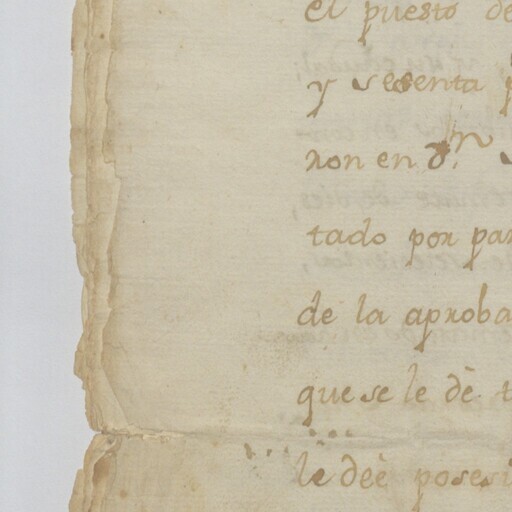 el puesto de
y sesenta p
ron en d.r S
tado por par
de la aproba
que se le dè t
le dèe posesi